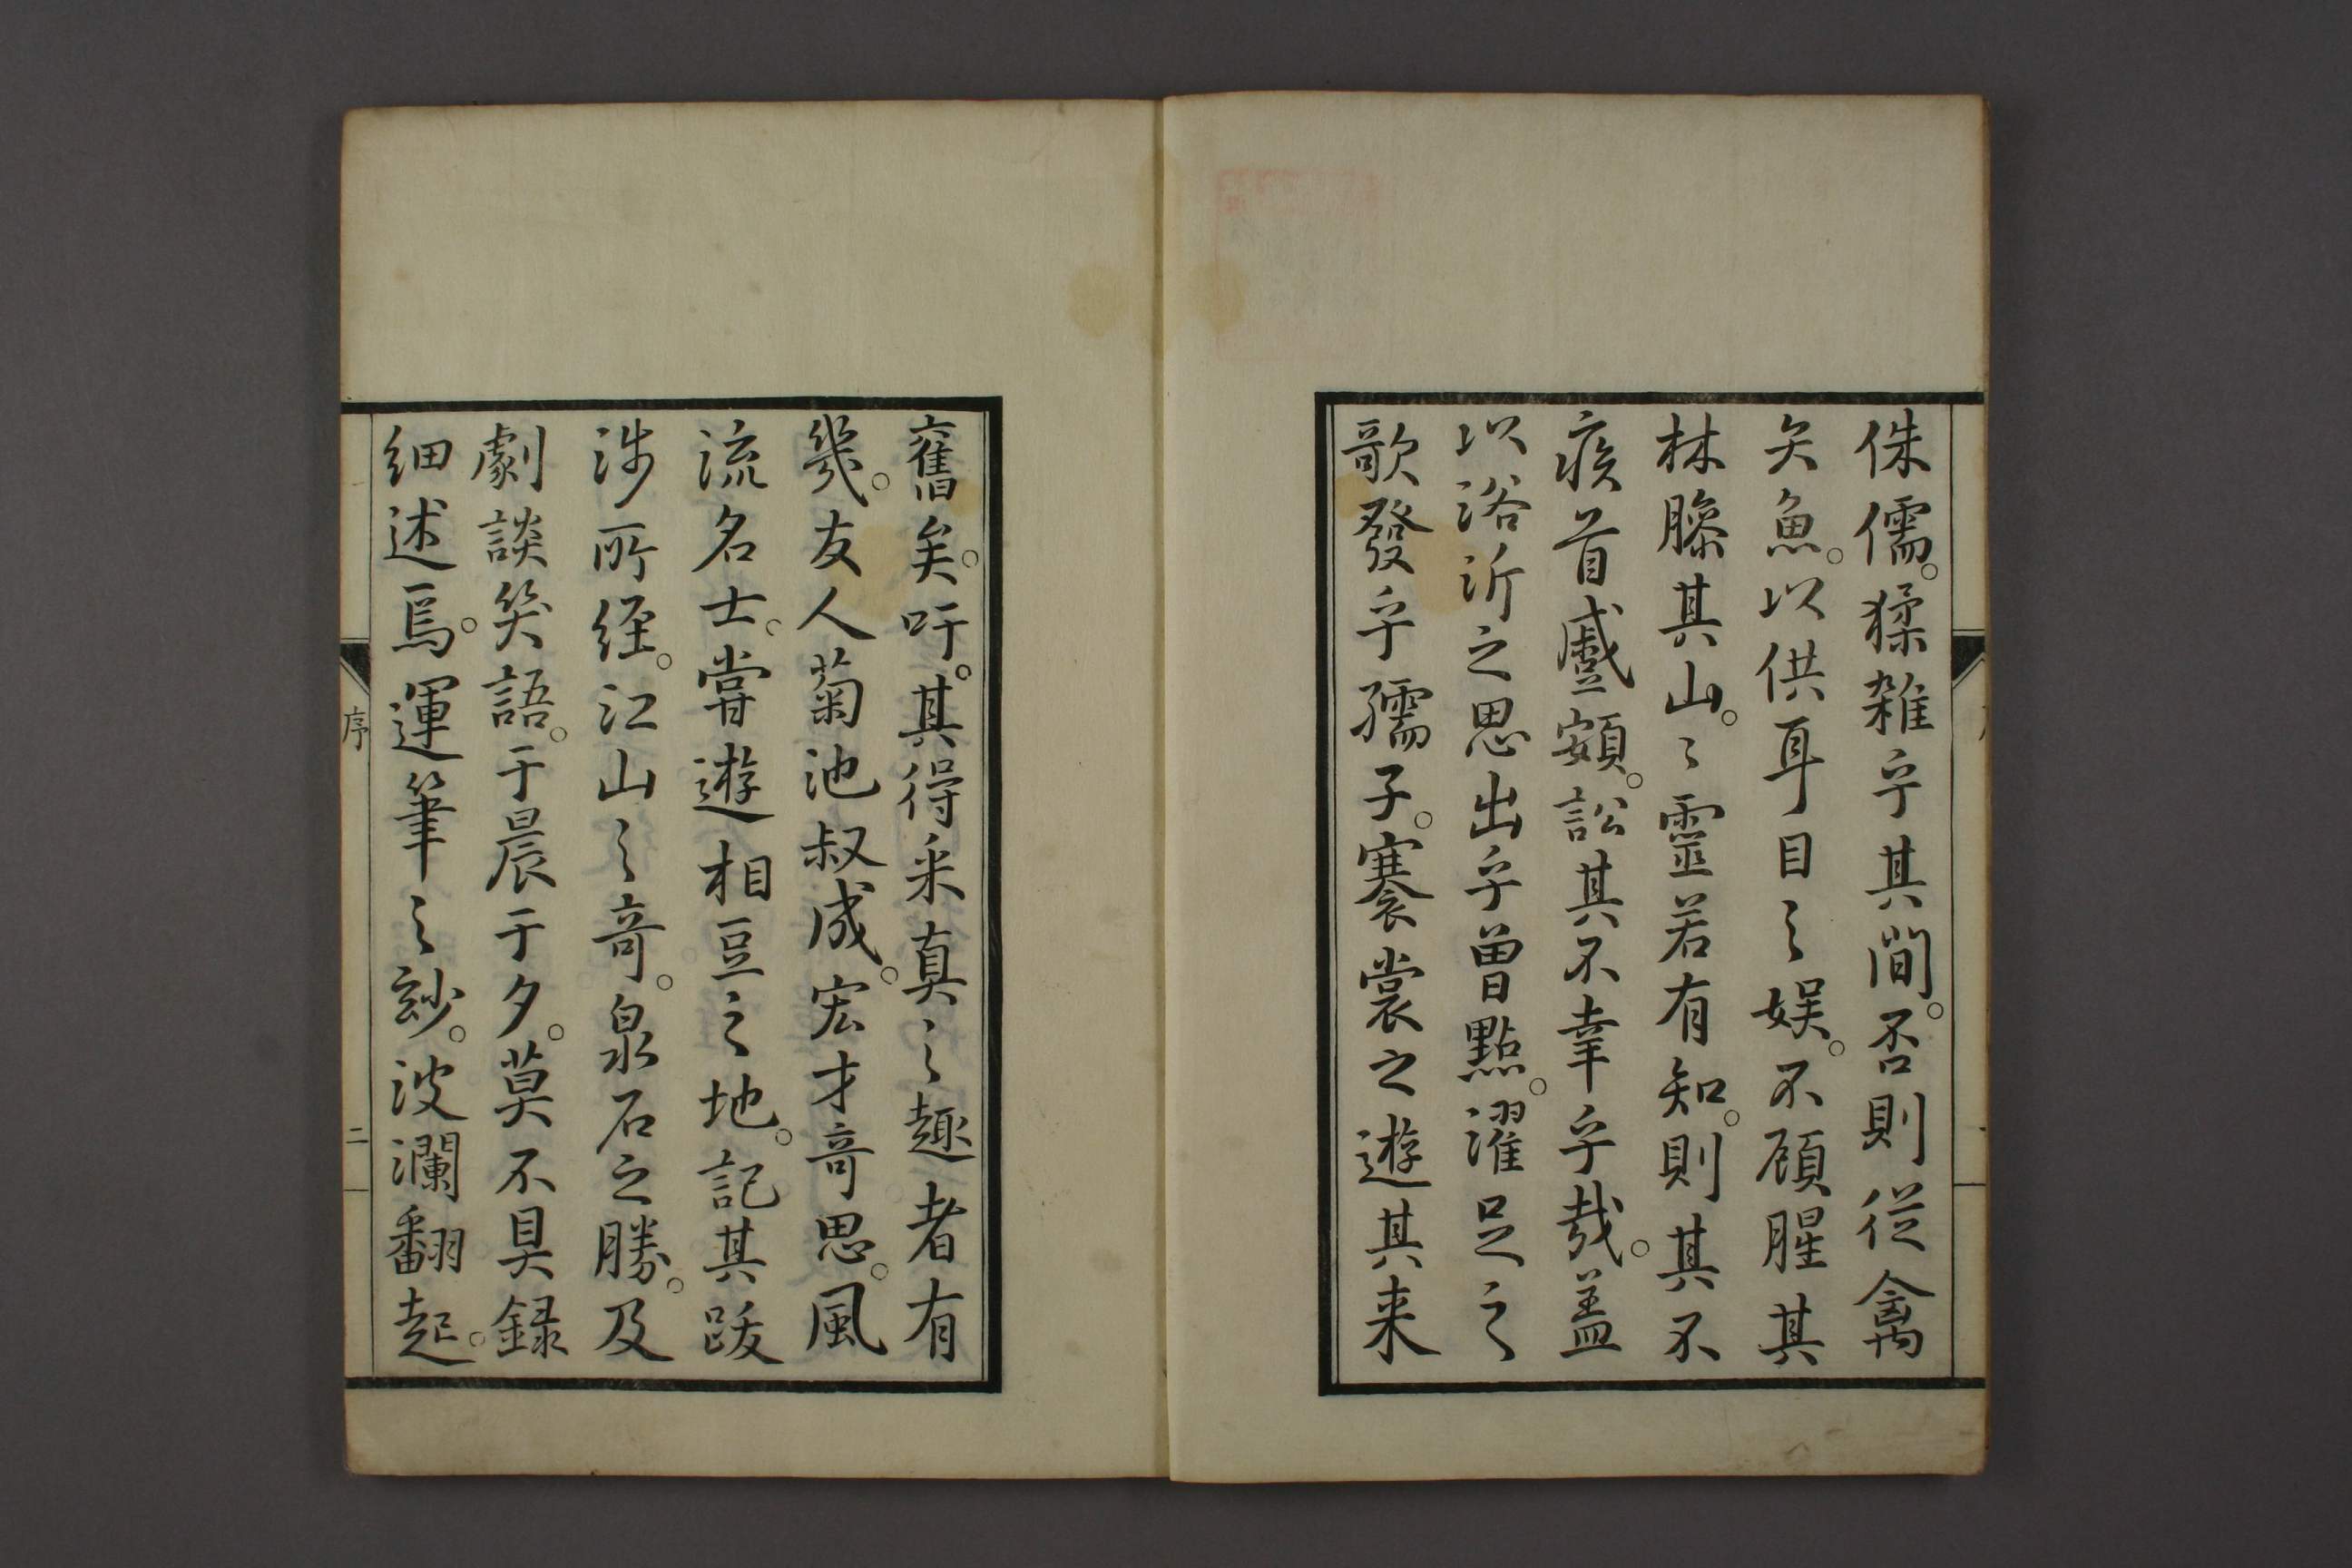 侏儒。猱雜乎其間。否則従禽
矢魚。以供耳目之娯。不顧腥其
林臊其山。〻靈若有知。則其不
疾首蹙頞。訟其不幸乎哉。盖
以浴沂之思出乎曽點。濯足之
歌發乎孺子。褰裳之遊其来
舊矣。吁。其得采真之趣者有
幾。友人菊池叔成。宏才竒思。風
流名士。甞遊相豆之地。記其跋
渉所経。江山之竒。泉石之勝。及
劇談笑語。于晨于夕。莫不具録
细述焉。運筆之玅。波瀾翻起。
序
二